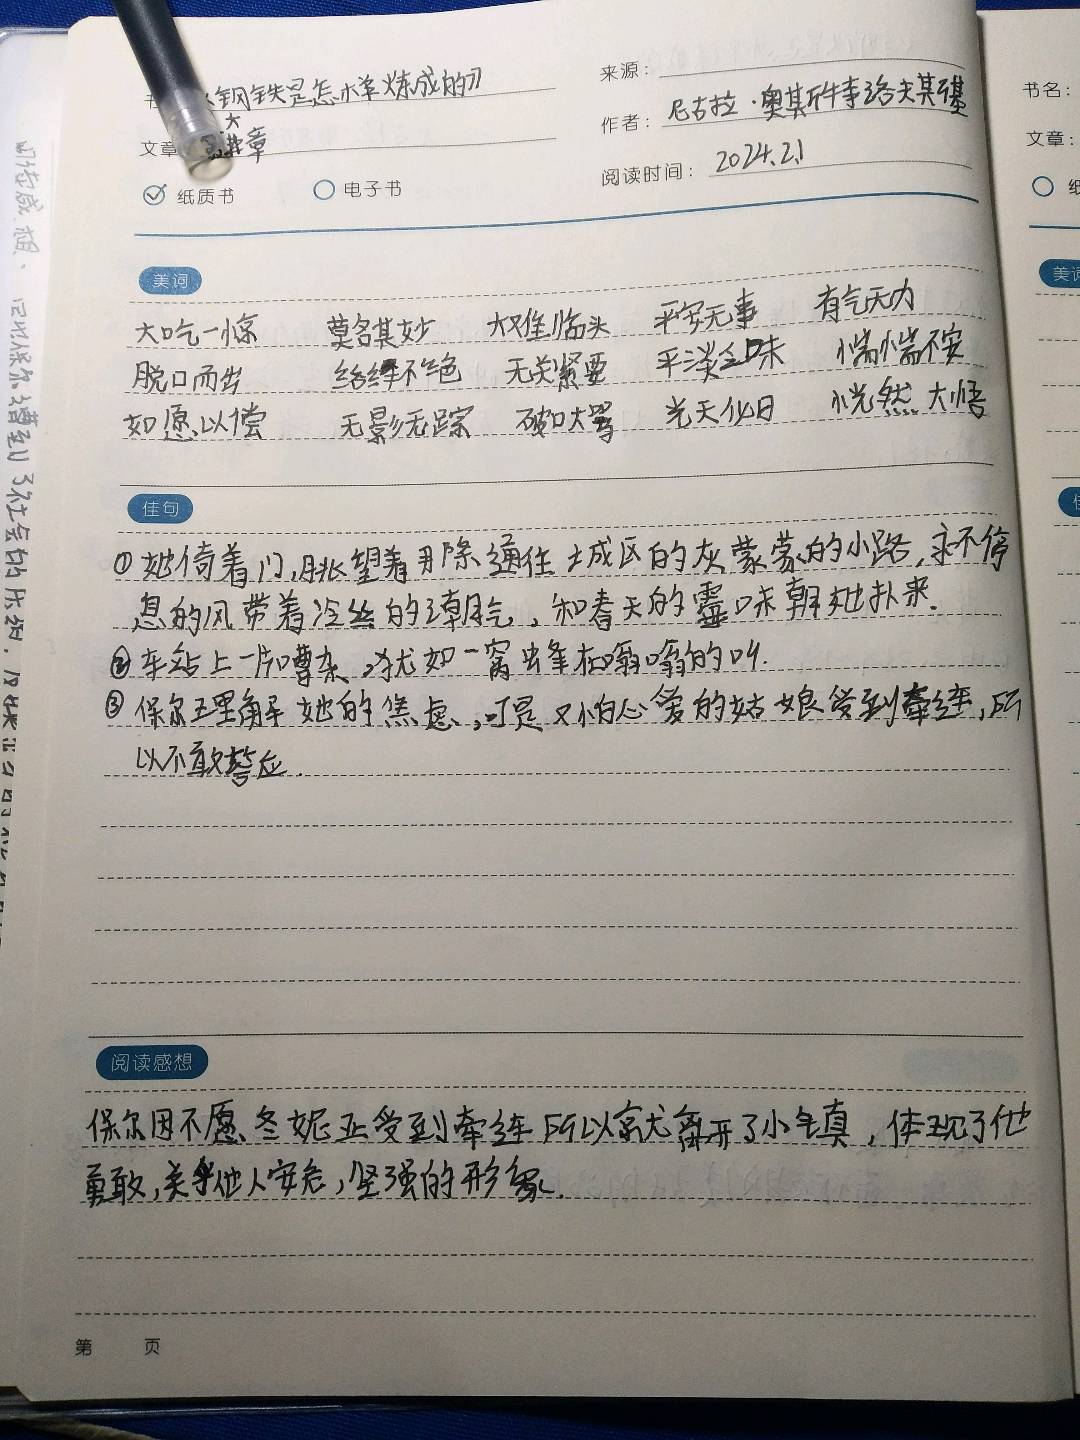 《钢铁是怎样炼成的》
来源：
作者：尼古拉·奥斯特洛夫斯基
文章
第六章
阅读时间：2024.2.1
纸质书 电子书
美词
大吃一惊 莫名其妙 大难临头 平安无事 有气无力
脱口而出 络绎不绝 无关紧要 平淡乏味 惴惴不安
如愿以偿 无影无踪 破口大骂 光天化日 恍然大悟
佳句
①她倚着门，眺望着那条通往土城区的灰蒙蒙的小路，永不停
息的风带着冷丝的潮气，和春天的霉味朝她扑来.
②车站上一片嘈杂，犹如一窝蜂在嗡嗡的叫.
③保尔理解她的焦虑，可是又怕心爱的姑娘受到牵连，所
以不敢答应.
阅读感想
保尔因不愿冬妮亚受到牵连所以就离开了小气真，体现了他
勇敢，关乎他人安危，坚强的形象.
第 页
书名：
文章：